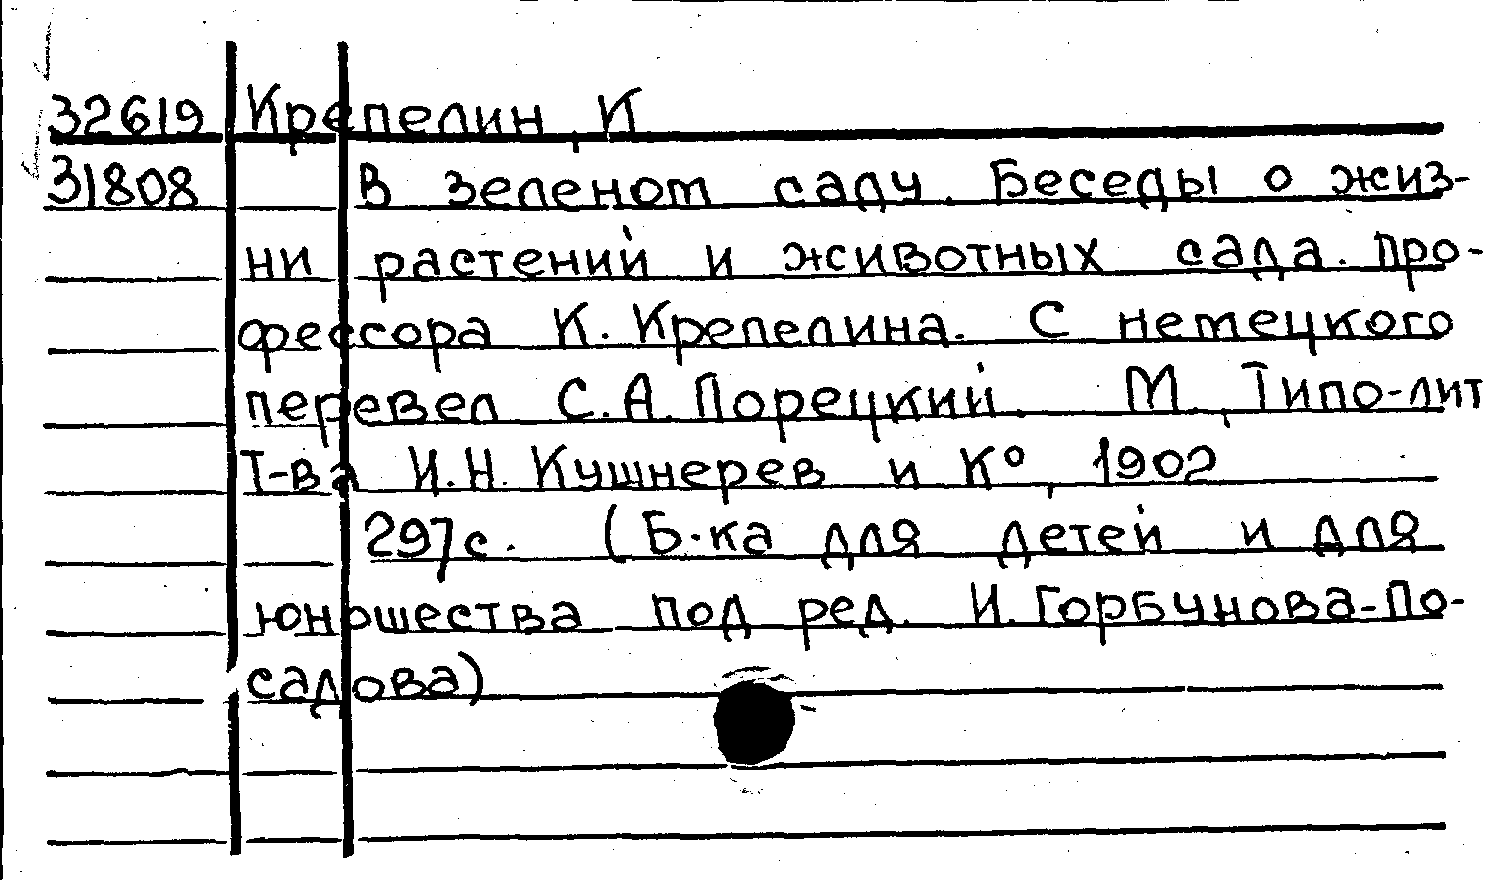 32619 Крепелин, К
31808 В зеленом саду. Беседы о жиз-
ни растений и животных сада. Про-
фессора К. Крепелина. С немецкого
перевел С.А. Порецкий. М, Типо-лит
Т-ва И.Н. Кушнерев и К°, 1902
297с. (Б-ка для детей и для
юношества под ред. И. Горбунова-По-
садова)